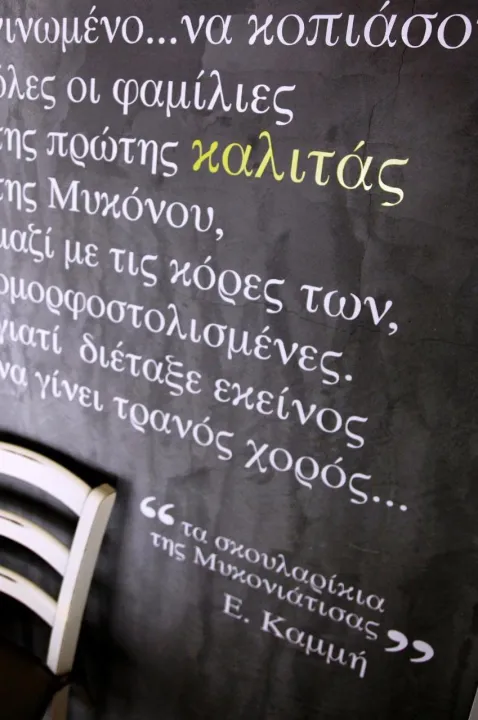 γινωμένο...να κοπιάσου
όλες οι φαμίλιες
της πρώτης καλιτάς
της Μυκόνου,
μαζί με τις κόρες των,
ομορφοστολισμένες.
γιατί διέταξε εκείνος
να γίνει τρανός χορός...
“ τα σκουλαρίκια
της Μυκονιάτισας ”
Ε. Καμμή